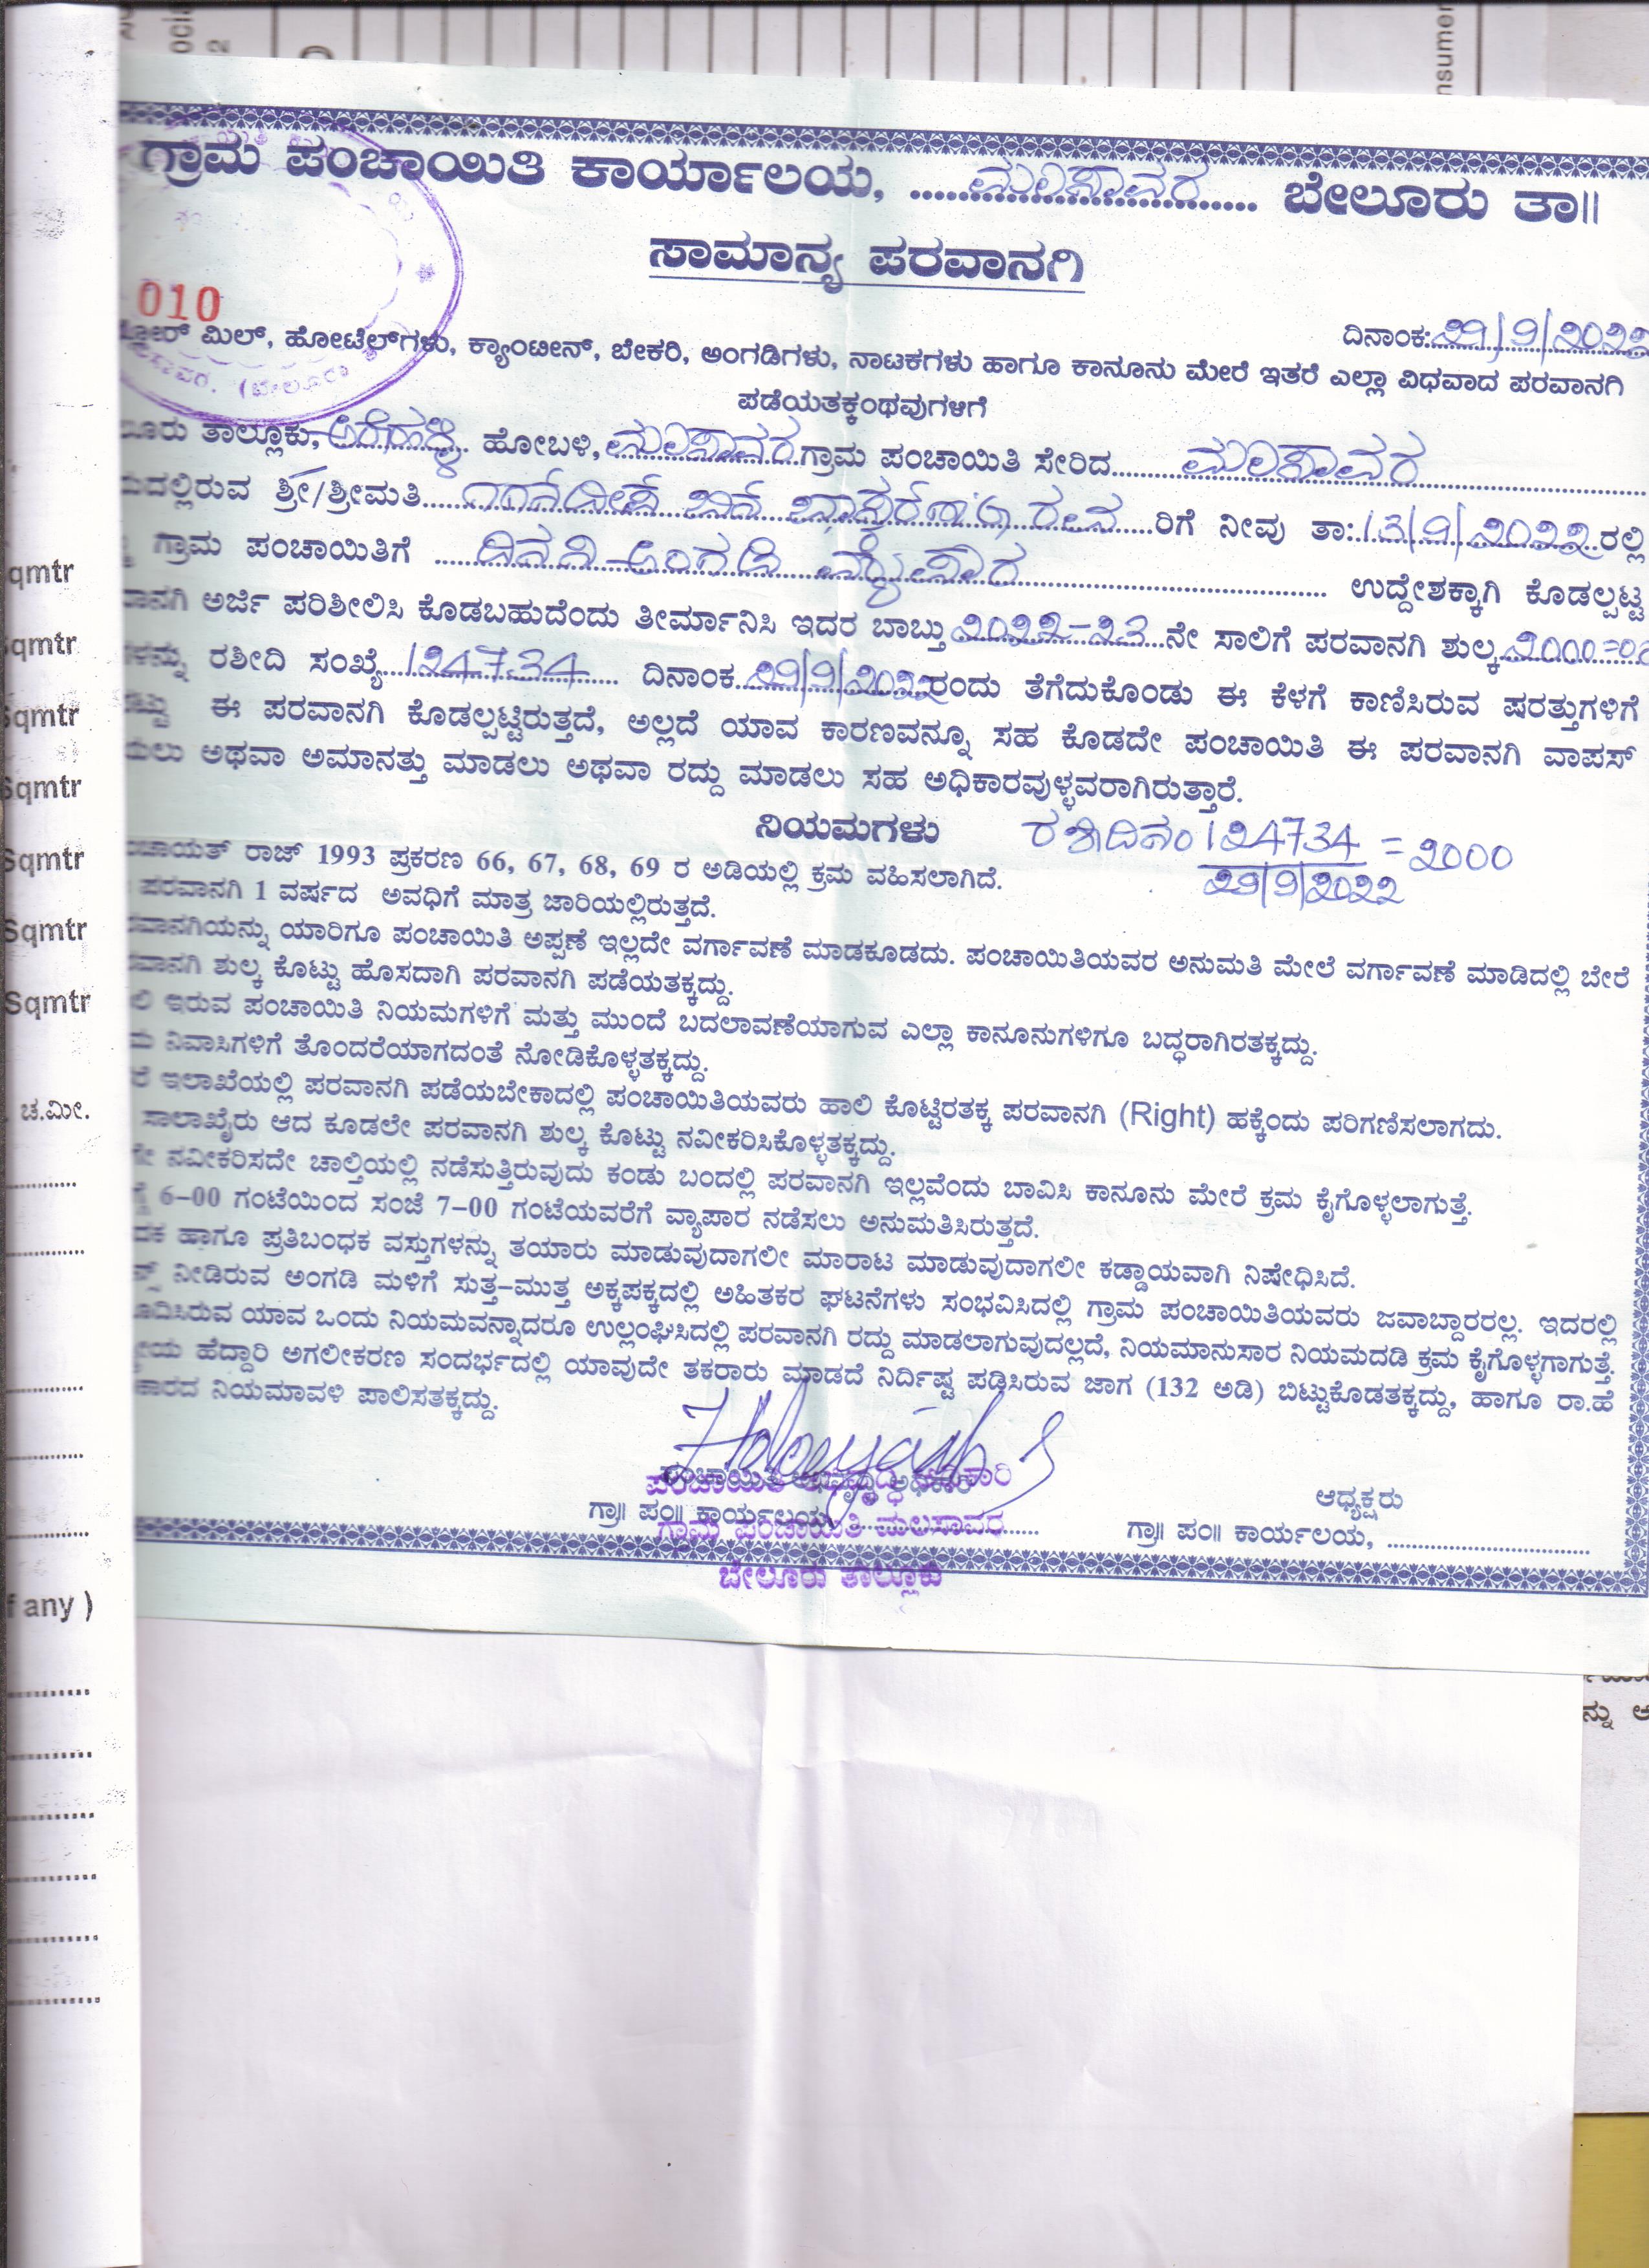 ಗ್ರಾಮ ಪಂಚಾಯಿತಿ ಕಾರ್ಯಾಲಯ, ......ಮಲಸಾವರ...... ಬೇಲೂರು ತಾ||
ಸಾಮಾನ್ಯ ಪರವಾನಗಿ
010
ದಿನಾಂಕ: 29/9/2022
ಮಿಲ್, ಹೋಟೆಲ್‌ಗಳು, ಕ್ಯಾಂಟೀನ್, ಬೇಕರಿ, ಅಂಗಡಿಗಳು, ನಾಟಕಗಳು ಹಾಗೂ ಕಾನೂನು ಮೇರೆ ಇತರೆ ಎಲ್ಲಾ ವಿಧವಾದ ಪರವಾನಗಿ
ಪಡೆಯತಕ್ಕಂಥವುಗಳಿಗೆ
ತಾಲ್ಲೂಕು, ಅರೇಹಳ್ಳಿ ಹೋಬಳಿ, ಮಲಸಾವರ ಗ್ರಾಮ ಪಂಚಾಯಿತಿ ಸೇರಿದ ಮಲಸಾವರ
ಶ್ರೀ/ಶ್ರೀಮತಿ ರಿಗೆ ನೀವು ತಾ: 13/9/2022 ರಲ್ಲಿ
ಗ್ರಾಮ ಪಂಚಾಯಿತಿಗೆ ದಿನಸಿ ಅಂಗಡಿ ವ್ಯಾಪಾರ ಉದ್ದೇಶಕ್ಕಾಗಿ ಕೊಡಲ್ಪಟ್ಟ
ಅರ್ಜಿ ಪರಿಶೀಲಿಸಿ ಕೊಡಬಹುದೆಂದು ತೀರ್ಮಾನಿಸಿ ಇದರ ಬಾಬ್ತು 2022-23 ನೇ ಸಾಲಿಗೆ ಪರವಾನಗಿ ಶುಲ್ಕ 2000=00
ರಶೀದಿ ಸಂಖ್ಯೆ 124734 ದಿನಾಂಕ 29/9/2022 ರಂದು ತೆಗೆದುಕೊಂಡು ಈ ಕೆಳಗೆ ಕಾಣಿಸಿರುವ ಷರತ್ತುಗಳಿಗೆ
ಈ ಪರವಾನಗಿ ಕೊಡಲ್ಪಟ್ಟಿರುತ್ತದೆ, ಅಲ್ಲದೆ ಯಾವ ಕಾರಣವನ್ನೂ ಸಹ ಕೊಡದೇ ಪಂಚಾಯಿತಿ ಈ ಪರವಾನಗಿ ವಾಪಸ್
ಅಥವಾ ಅಮಾನತ್ತು ಮಾಡಲು ಅಥವಾ ರದ್ದು ಮಾಡಲು ಸಹ ಅಧಿಕಾರವುಳ್ಳವರಾಗಿರುತ್ತಾರೆ.
ನಿಯಮಗಳು
ರಶೀದಿ ನಂ 124734 = 2000
29/9/2022
ರಾಜ್ 1993 ಪ್ರಕರಣ 66, 67, 68, 69 ರ ಅಡಿಯಲ್ಲಿ ಕ್ರಮ ವಹಿಸಲಾಗಿದೆ.
ಪರವಾನಗಿ 1 ವರ್ಷದ ಅವಧಿಗೆ ಮಾತ್ರ ಜಾರಿಯಲ್ಲಿರುತ್ತದೆ.
ಯಾರಿಗೂ ಪಂಚಾಯಿತಿ ಅಪ್ಪಣೆ ಇಲ್ಲದೇ ವರ್ಗಾವಣೆ ಮಾಡಕೂಡದು. ಪಂಚಾಯಿತಿಯವರ ಅನುಮತಿ ಮೇಲೆ ವರ್ಗಾವಣೆ ಮಾಡಿದಲ್ಲಿ ಬೇರೆ
ಶುಲ್ಕ ಕೊಟ್ಟು ಹೊಸದಾಗಿ ಪರವಾನಗಿ ಪಡೆಯತಕ್ಕದ್ದು.
ಇರುವ ಪಂಚಾಯಿತಿ ನಿಯಮಗಳಿಗೆ ಮತ್ತು ಮುಂದೆ ಬದಲಾವಣೆಯಾಗುವ ಎಲ್ಲಾ ಕಾನೂನುಗಳಿಗೂ ಬದ್ಧರಾಗಿರತಕ್ಕದ್ದು.
ನಿವಾಸಿಗಳಿಗೆ ತೊಂದರೆಯಾಗದಂತೆ ನೋಡಿಕೊಳ್ಳತಕ್ಕದ್ದು.
ಇಲಾಖೆಯಲ್ಲಿ ಪರವಾನಗಿ ಪಡೆಯಬೇಕಾದಲ್ಲಿ ಪಂಚಾಯಿತಿಯವರು ಹಾಲಿ ಕೊಟ್ಟಿರತಕ್ಕ ಪರವಾನಗಿ (Right) ಹಕ್ಕೆಂದು ಪರಿಗಣಿಸಲಾಗದು.
ಸಾಲಾಖೈರು ಆದ ಕೂಡಲೇ ಪರವಾನಗಿ ಶುಲ್ಕ ಕೊಟ್ಟು ನವೀಕರಿಸಿಕೊಳ್ಳತಕ್ಕದ್ದು.
ನವೀಕರಿಸದೇ ಚಾಲ್ತಿಯಲ್ಲಿ ನಡೆಸುತ್ತಿರುವುದು ಕಂಡು ಬಂದಲ್ಲಿ ಪರವಾನಗಿ ಇಲ್ಲವೆಂದು ಬಾವಿಸಿ ಕಾನೂನು ಮೇರೆ ಕ್ರಮ ಕೈಗೊಳ್ಳಲಾಗುತ್ತೆ.
6-00 ಗಂಟೆಯಿಂದ ಸಂಜೆ 7-00 ಗಂಟೆಯವರೆಗೆ ವ್ಯಾಪಾರ ನಡೆಸಲು ಅನುಮತಿಸಿರುತ್ತದೆ.
ಹಾಗೂ ಪ್ರತಿಬಂಧಕ ವಸ್ತುಗಳನ್ನು ತಯಾರು ಮಾಡುವುದಾಗಲೀ ಮಾರಾಟ ಮಾಡುವುದಾಗಲೀ ಕಡ್ಡಾಯವಾಗಿ ನಿಷೇಧಿಸಿದೆ.
ನೀಡಿರುವ ಅಂಗಡಿ ಮಳಿಗೆ ಸುತ್ತ-ಮುತ್ತ ಅಕ್ಕಪಕ್ಕದಲ್ಲಿ ಅಹಿತಕರ ಘಟನೆಗಳು ಸಂಭವಿಸಿದಲ್ಲಿ ಗ್ರಾಮ ಪಂಚಾಯಿತಿಯವರು ಜವಾಬ್ದಾರರಲ್ಲ. ಇದರಲ್ಲಿ
ಯಾವ ಒಂದು ನಿಯಮವನ್ನಾದರೂ ಉಲ್ಲಂಘಿಸಿದಲ್ಲಿ ಪರವಾನಗಿ ರದ್ದು ಮಾಡಲಾಗುವುದಲ್ಲದೆ, ನಿಯಮಾನುಸಾರ ನಿಯಮದಡಿ ಕ್ರಮ ಕೈಗೊಳ್ಳಗಾಗುತ್ತೆ.
ಹೆದ್ದಾರಿ ಅಗಲೀಕರಣ ಸಂದರ್ಭದಲ್ಲಿ ಯಾವುದೇ ತಕರಾರು ಮಾಡದೆ ನಿರ್ದಿಷ್ಟ ಪಡಿಸಿರುವ ಜಾಗ (132 ಅಡಿ) ಬಿಟ್ಟುಕೊಡತಕ್ಕದ್ದು, ಹಾಗೂ ರಾ.ಹೆ
ನಿಯಮಾವಳಿ ಪಾಲಿಸತಕ್ಕದ್ದು.
ಪಂಚಾಯಿತಿ ಅಭಿವೃದ್ಧಿ ಅಧಿಕಾರಿ
ಗ್ರಾ|| ಪಂ|| ಕಾರ್ಯಲಯ,
ಗ್ರಾಮ ಪಂಚಾಯಿತಿ ಮಲಸಾವರ
ಬೇಲೂರು ತಾಲ್ಲೂಕು
ಆಧ್ಯಕ್ಷರು
ಗ್ರಾ|| ಪಂ|| ಕಾರ್ಯಲಯ, ......
qmtr
qmtr
qmtr
Sqmtr
Sqmtr
Sqmtr
Sqmtr
ಚ.ಮೀ.
any )